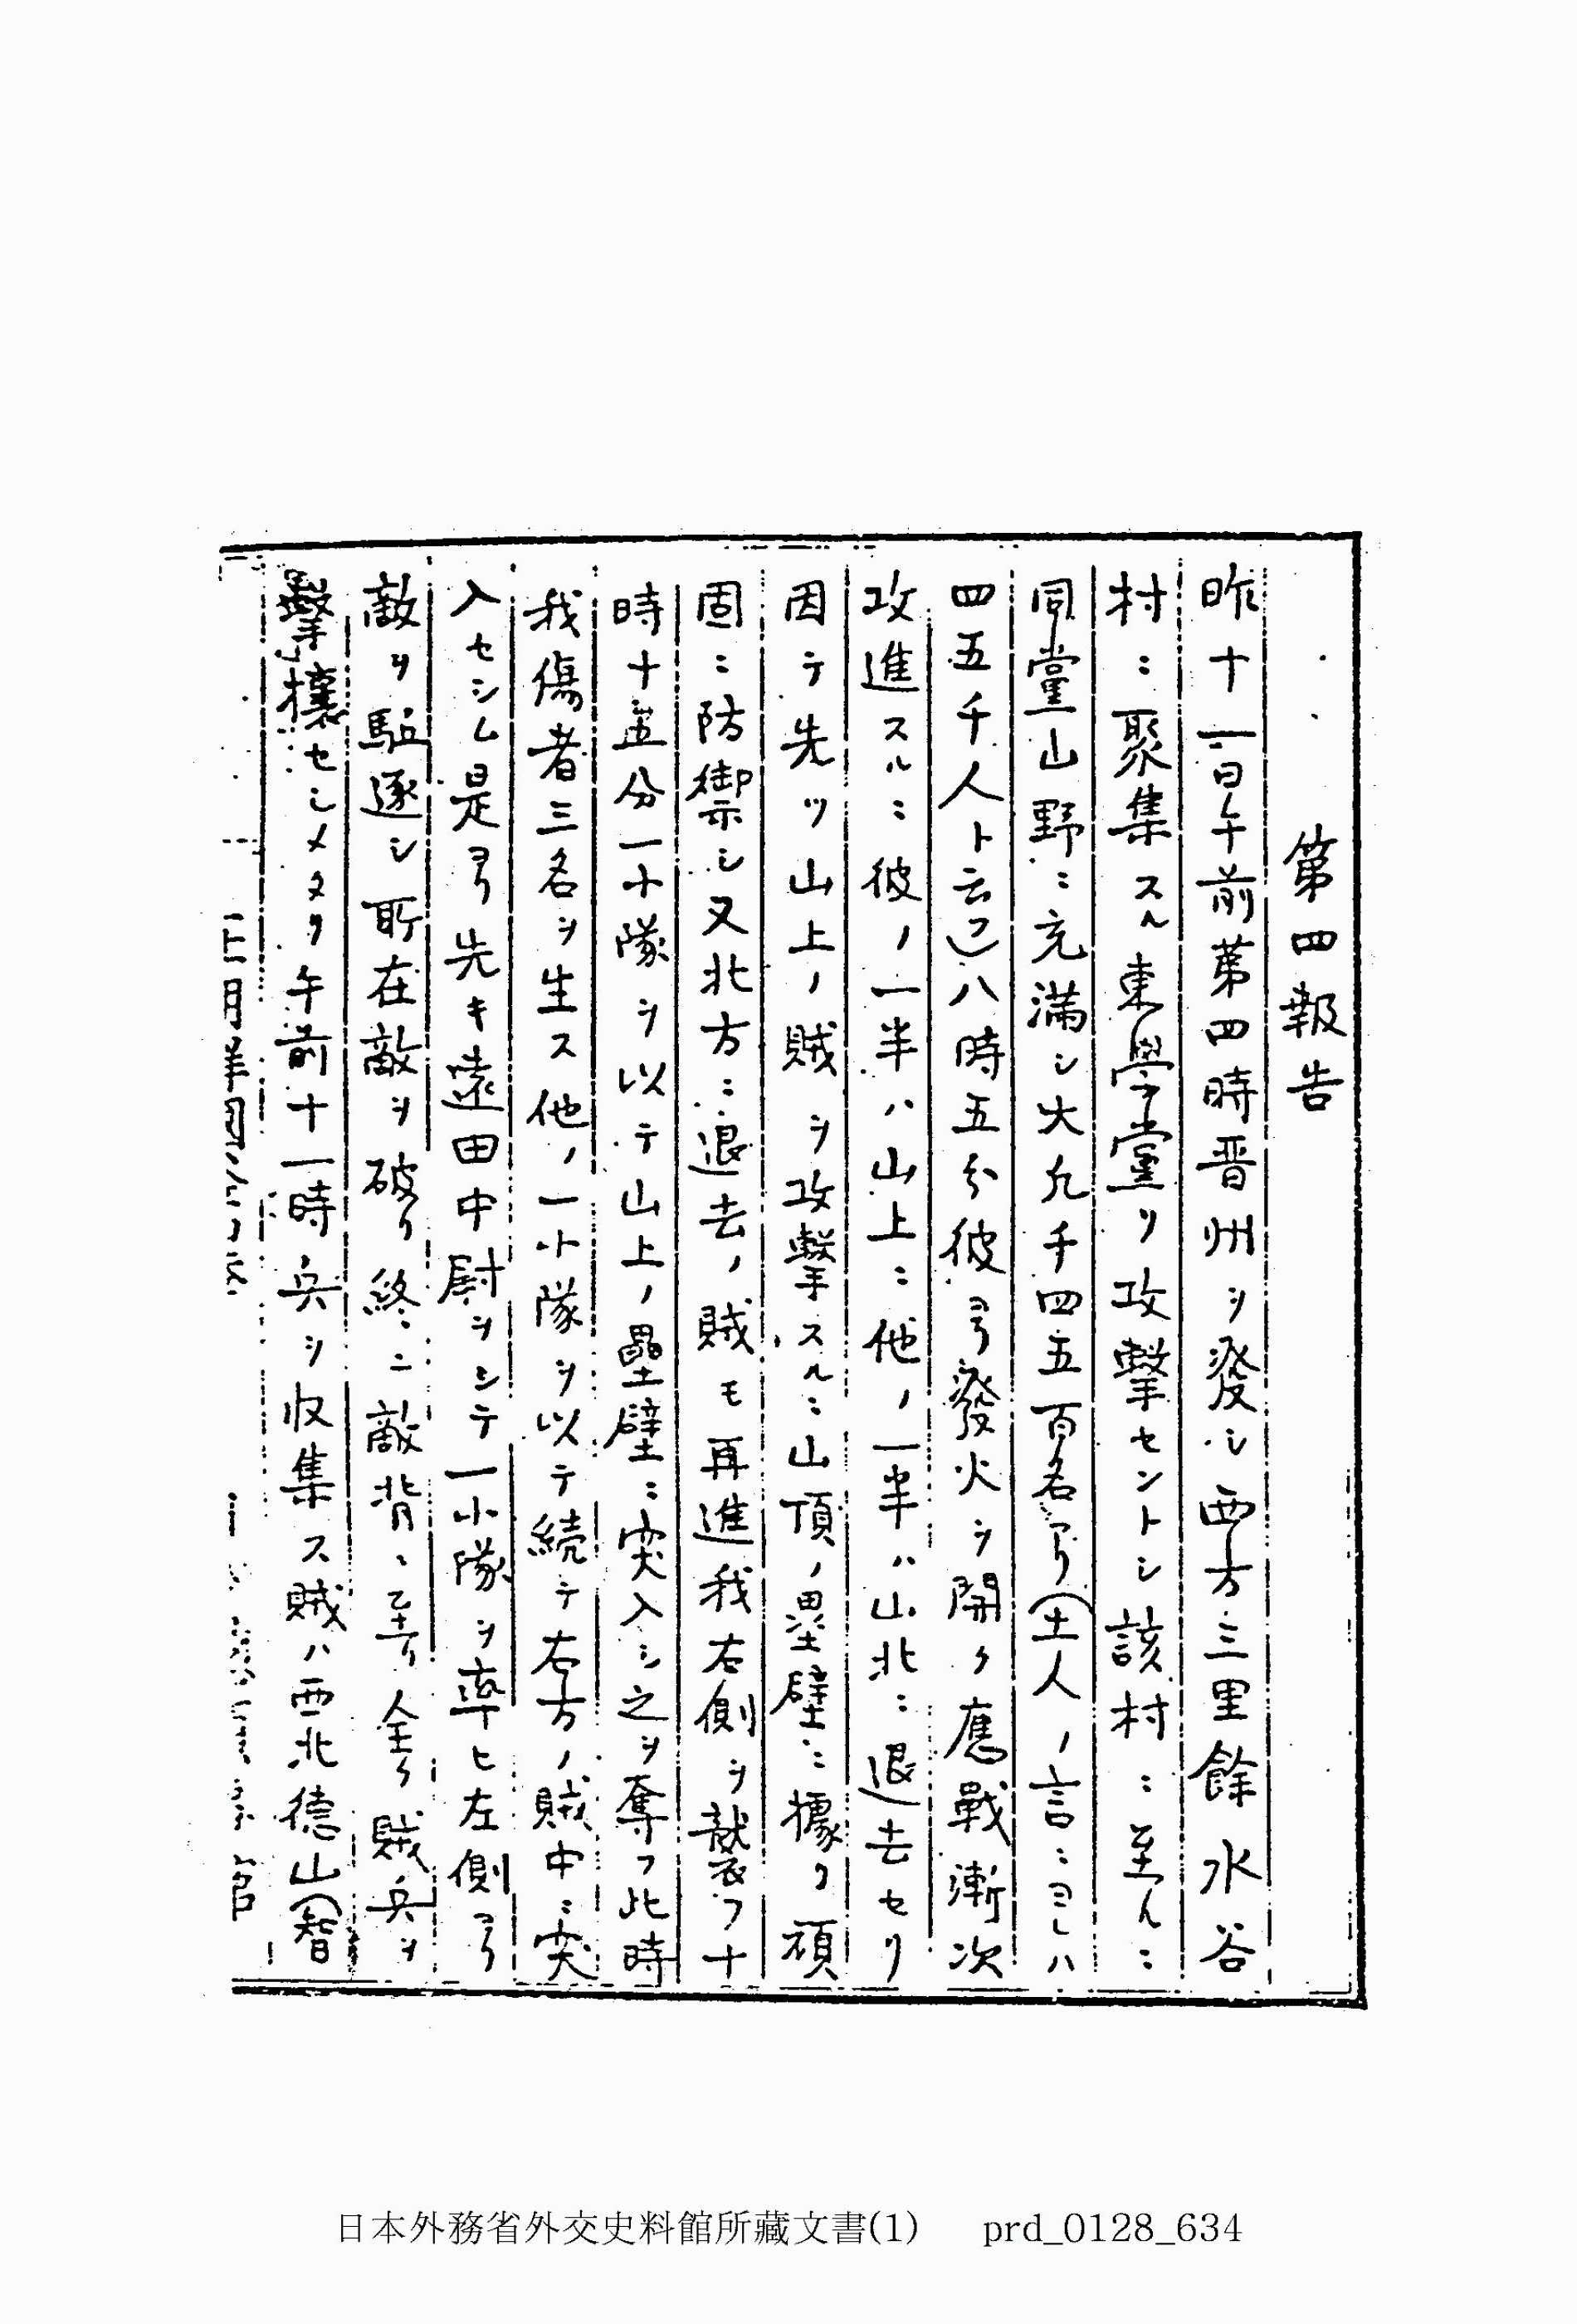 第四報告
昨十一日午前第四時晋州ヲ發シ西方三里餘水谷
村ニ聚集スル東學黨ヲ攻擊セントシ該村ニ至ルニ
同黨山野ニ充滿シ大凡千四五百名アリ(土人ノ言ニヨレハ
四五千人ト云フ)八時五分彼ヨリ發火ヲ開ク應戰漸次
攻進スルニ彼ノ一半ハ山上ニ他ノ一半ハ山北ニ退去セリ
因テ先ツ山上ノ賊ヲ攻擊スルニ山頂ノ塁壁ニ據リ頑
固ニ防禦シ又北方ニ退去ノ賊モ再進我右側ヲ襲フ十
時十五分一小隊ヲ以テ山上ノ壘壁ニ突入シ之ヲ奪フ此時
我傷者三名ヲ生ス他ノ一小隊ヲ以テ続テ右方ノ賊中ニ突
入セシム是ヨリ先キ遠田中尉ヲシテ一小隊ヲ率ヒ左側ヨリ
敵ヲ駈逐シ所在敵ヲ破リ終ニ敵背ニ至リ全ク賊兵ヲ
擊攘セシメタリ午前十一時兵ヲ収集ス賊ハ西北德山(智
日本外務省外交史料館所藏文書(1) prd_0128_634